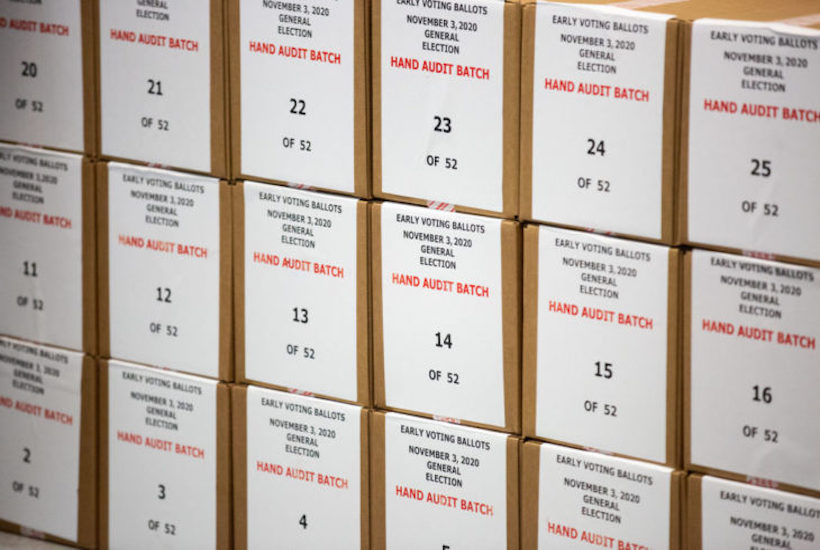 AUDIT BATCH
20
OF 52
GENERAL
ELECTION
HAND AUDIT BATCH
21
OF 52
NOVEMBER 3, 2020
GENERAL
ELECTION
HAND AUDIT BATCH
22
OF 52
EARLY VOTING BALLOTS
NOVEMBER 3, 2020
GENERAL
ELECTION
HAND AUDIT BATCH
23
OF 52
EARLY VOTING BALLOTS
NOVEMBER 3, 2020
GENERAL
ELECTION
HAND AUDIT BATCH
24
OF 52
EARLY VOTING BALLOTS
NOVEMBER 3, 2020
GENERAL
ELECTION
HAND AUDIT BATCH
25
OF 52
VOTING BALLOTS
NOVEMBER 3, 2020
GENERAL
ELECTION
AUDIT BATCH
11
OF 52
EARLY VOTING BALLOTS
NOVEMBER 3, 2020
GENERAL
ELECTION
HAND AUDIT BATCH
12
OF 52
EARLY VOTING BALLOTS
NOVEMBER 3, 2020
GENERAL
ELECTION
HAND AUDIT BATCH
13
OF 52
EARLY VOTING BALLOTS
NOVEMBER 3, 2020
GENERAL
ELECTION
HAND AUDIT BATCH
14
OF 52
EARLY VOTING BALLOTS
NOVEMBER 3, 2020
GENERAL
ELECTION
HAND AUDIT BATCH
15
OF 52
EARLY VOTING BALLOTS
NOVEMBER 3, 2020
GENERAL
ELECTION
HAND AUDIT BATCH
16
OF 52
VOTING BALLOTS
NOVEMBER 3, 2020
GENERAL
ELECTION
AUDIT BATCH
2
OF 52
EARLY VOTING BALLOTS
NOVEMBER 3, 2020
GENERAL
ELECTION
HAND AUDIT BATCH
3
OF 52
EARLY VOTING BALLOTS
NOVEMBER 3, 2020
GENERAL
ELECTION
HAND AUDIT BATCH
4
EARLY VOTING BALLOTS
NOVEMBER 3, 2020
GENERAL
ELECTION
HAND AUDIT BATCH
EARLY VOTING BALLOTS
NOVEMBER 3, 2020
GENERAL
ELECTION
HAND AUDIT BATCH
EARLY VOTING BALLOTS
NOVEMBER 3, 2020
GENERAL